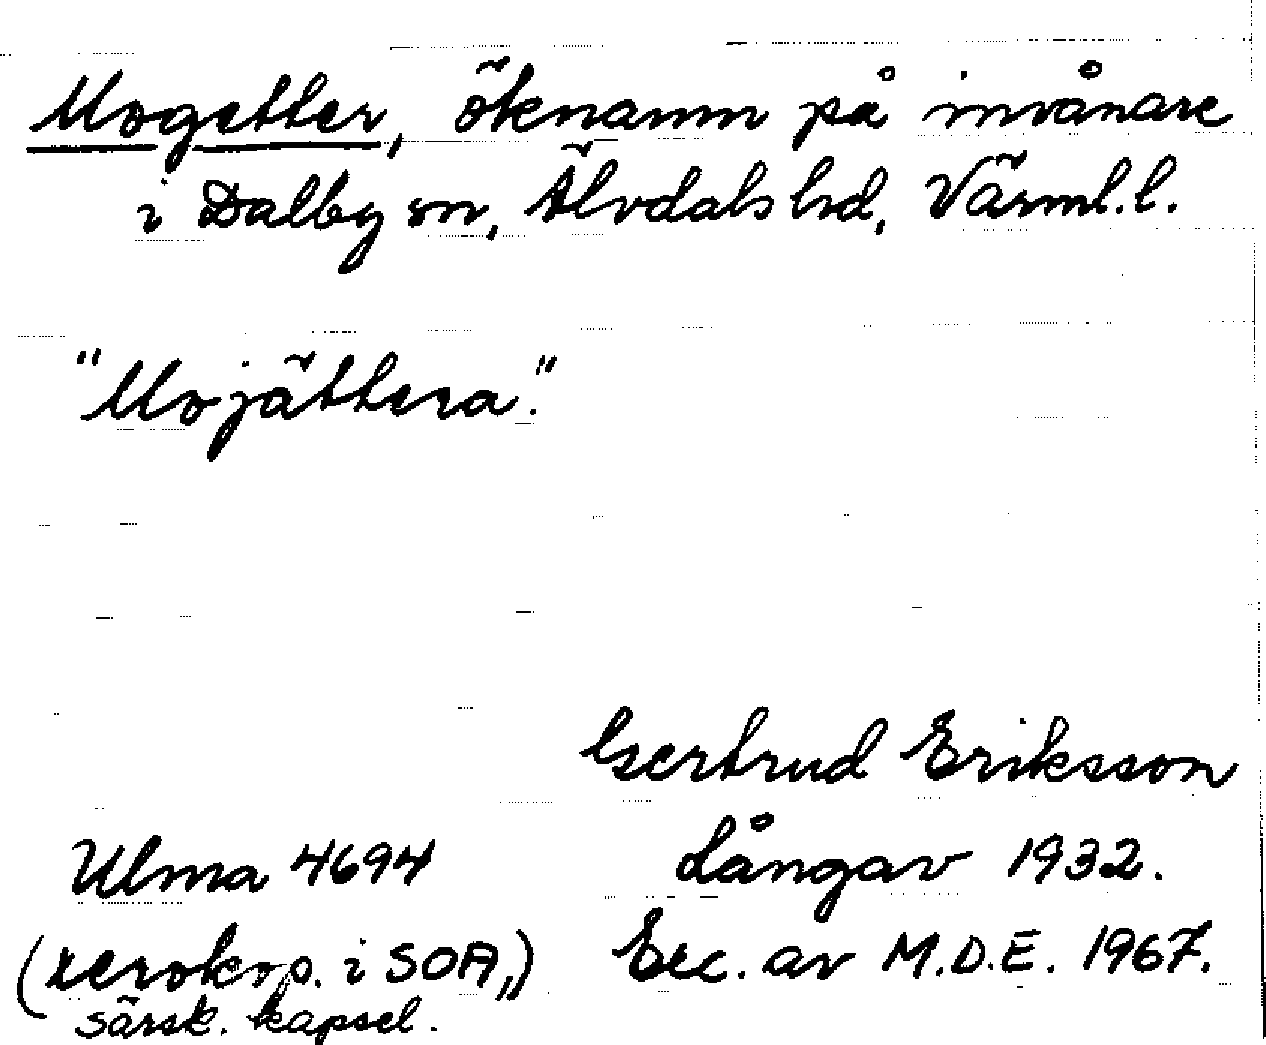 Mogetter, öknamn på invånare
i Dalby sn, Älvdals hd, Värml. l.
"Mojättera."
Gertrud Eriksson
Ulma 4694 Långav 1932.
(xerokop. i SOA,,) Exc. av M.D.E. 1967.
särsk. kapsel.